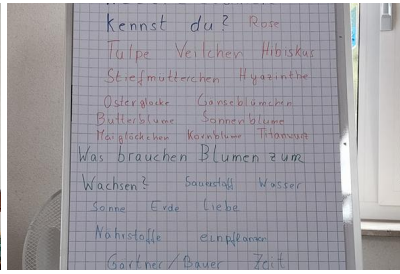 Kennst du? Rose
Tulpe Veilchen Hibiskus
Stiefmütterchen Hyazinthe
Osterglocke Gänseblümchen
Butterblume Sonnenblume
Maiglöckchen Kornblume Titanwurz
Was brauchen Blumen zum
Wachsen? Sauerstoff Wasser
Sonne Erde Liebe
Nährstoffe einpflanzen
Gärtner/Bauer Zeit